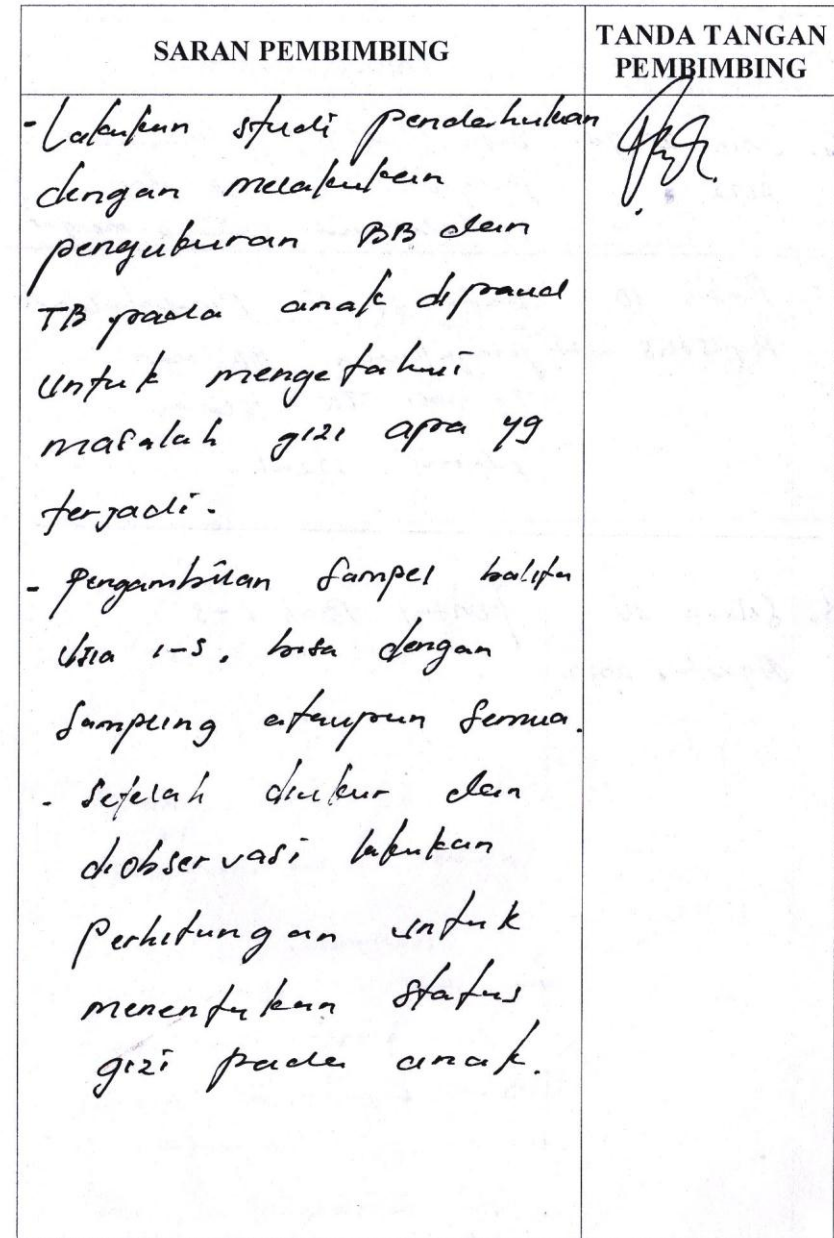 SARAN PEMBIMBING
TANDA TANGAN
PEMBIMBING
- Lakukan studi pendahuluan
dengan melakukan
pengukuran BB dan
TB pada anak dipaud
untuk mengetahui
masalah gizi apa yg
terjadi.
- Pengambilan sampel balita
usia 1-5, bisa dengan
sampling ataupun semua.
- Setelah diukur dan
diobservasi lakukan
Perhitungan untuk
menentukan status
gizi pada anak.